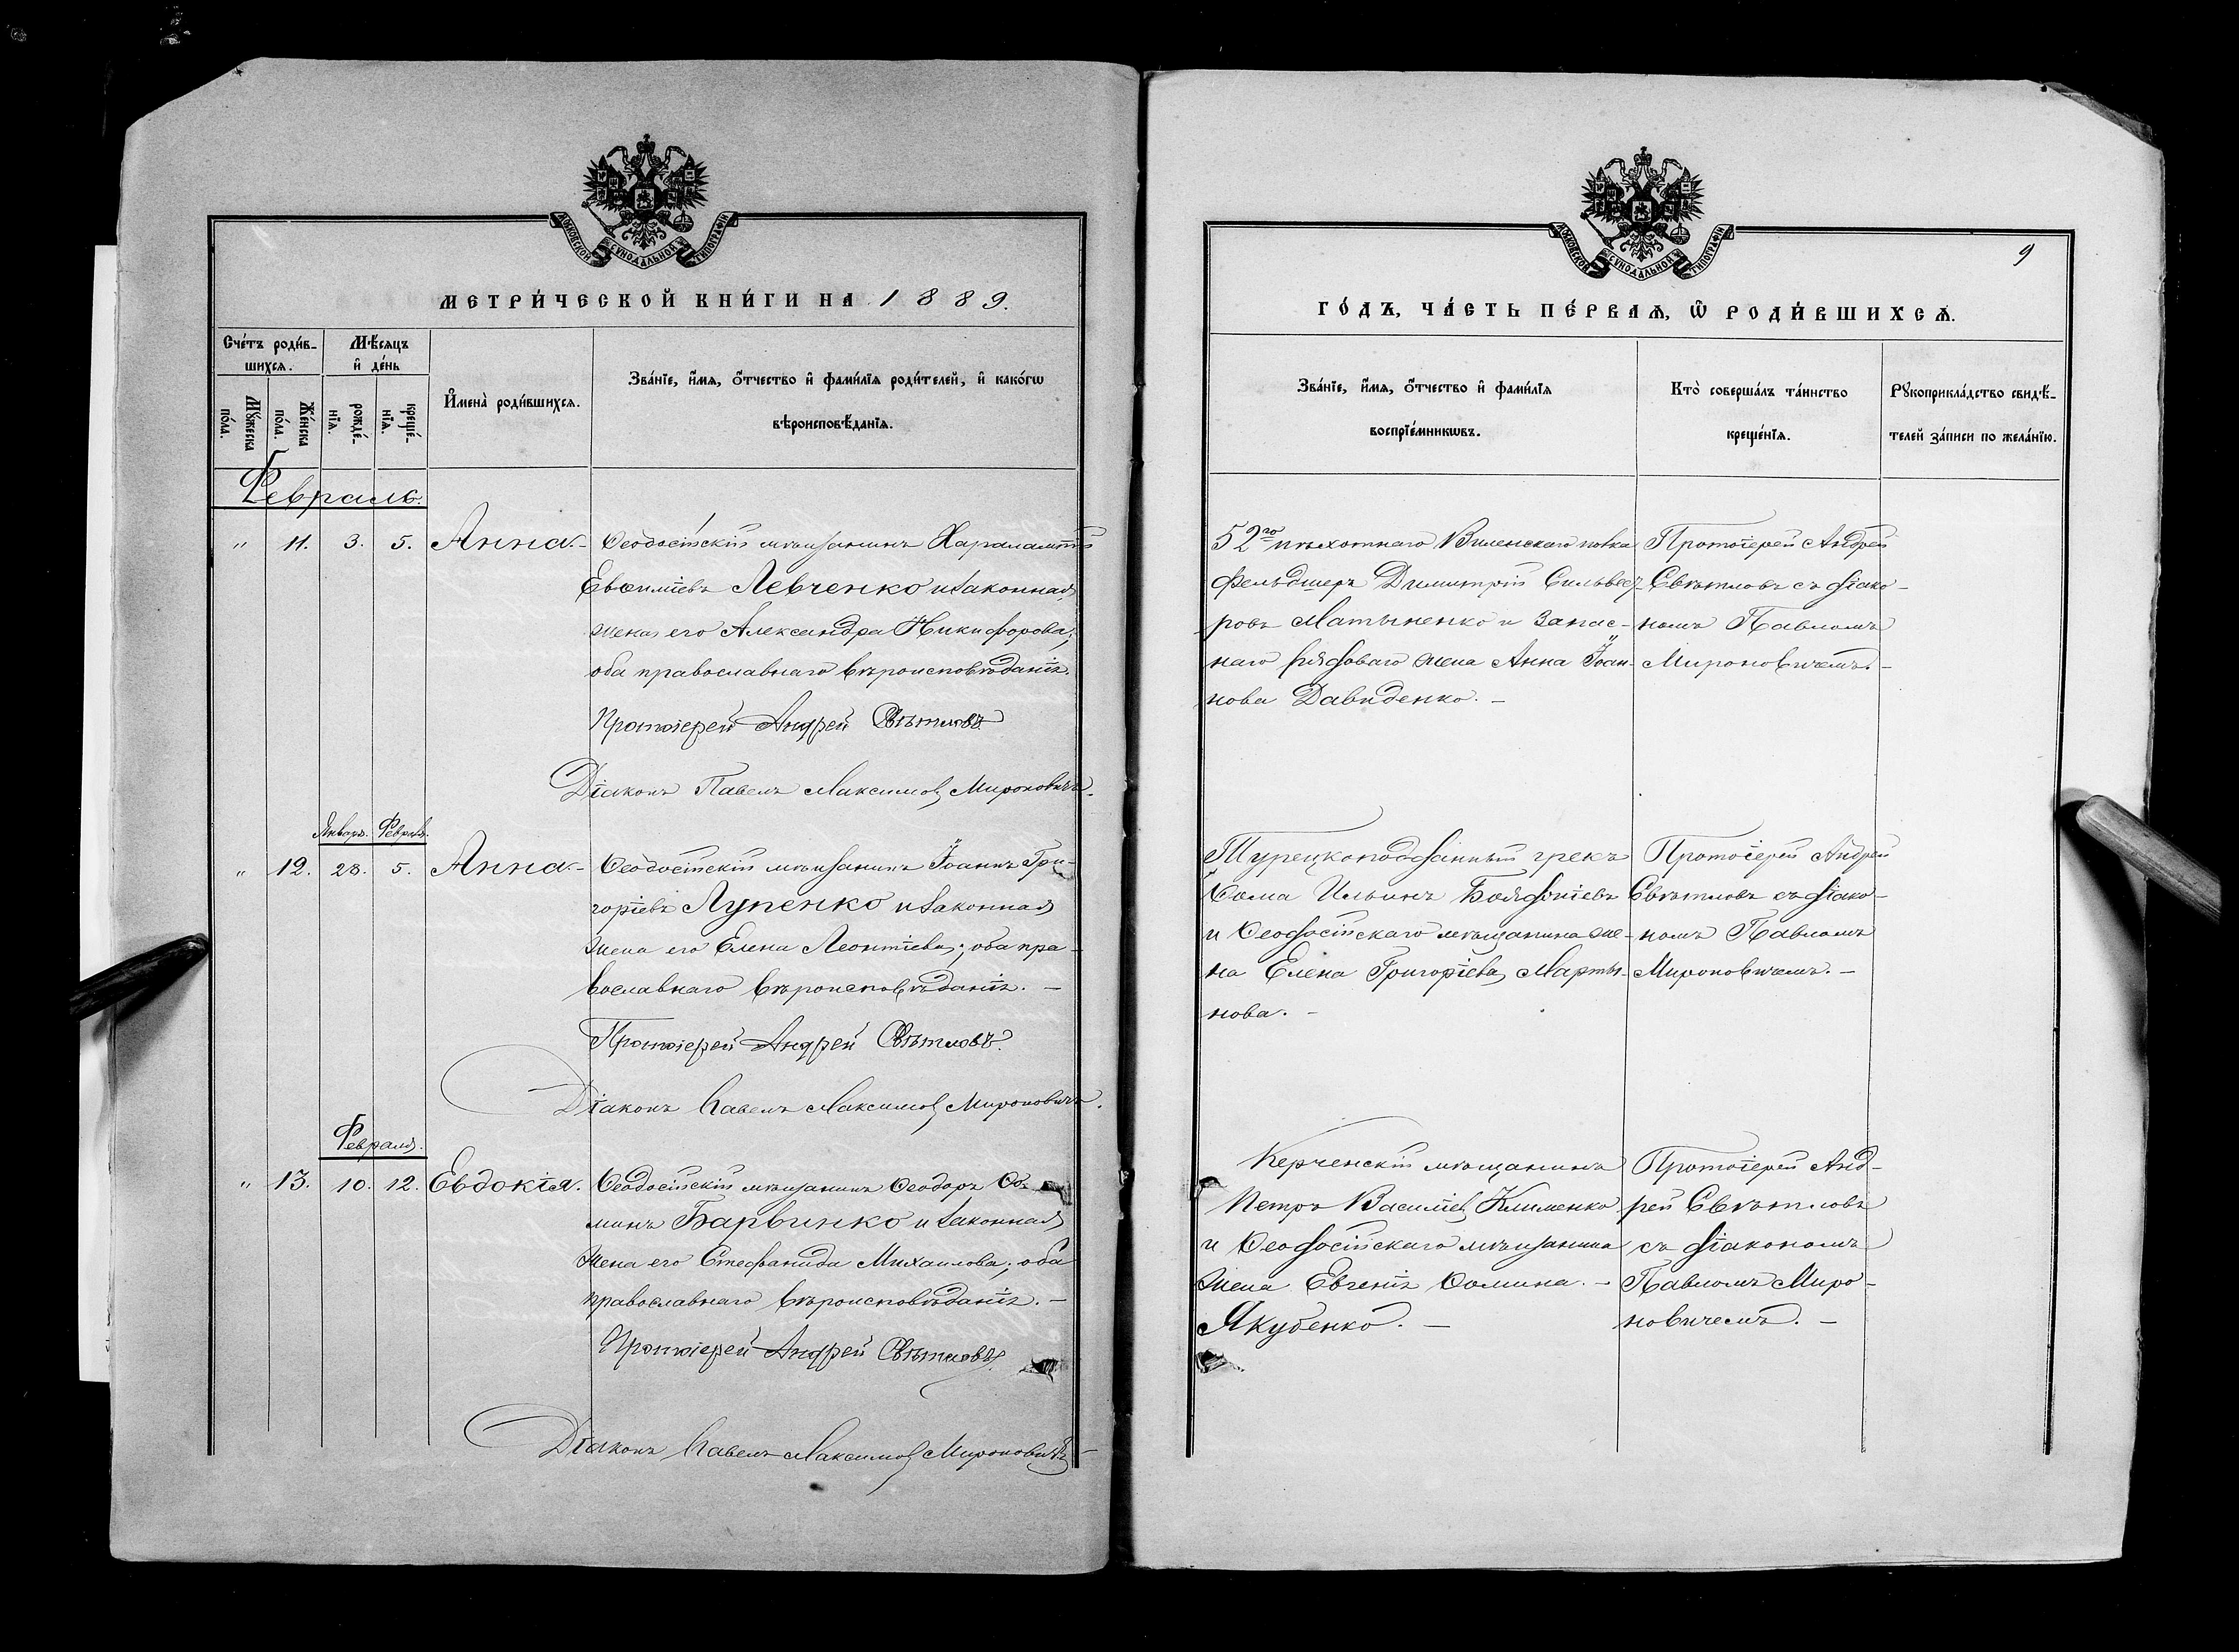 МОСКОВСКОЙ СУНОДАЛЬНОЙ ТИПОГРАФІИ
МЕТРИ́ЧЕСКОЙ КНИ́ГИ НА 1889.
Сче́тъ роди́в-
шихсѧ.
Мѣ́сяцъ
и҆ де́нь
Мꙋ́жеска
по́ла.
Же́нска
по́ла.
рожде́-
нїѧ.
креще́-
нїѧ.
И҆мена̀ роди́вшихсѧ.
Зва́нїе, и҆́мѧ, ѻ҆́тчество и҆ фами́лїѧ роди́телей, и҆ како́гѡ
вѣроисповѣ́данїѧ.
Февраль.
" 11. 3. 5. Анна.- Ѳеодосійскій мѣщанинъ Харалампій
Евѳиміевъ Левченко и законная
жена его Александра Никифорова;
оба православнаго вѣроисповѣданія.
Протоіерей Андрей Свѣтловъ
Діаконъ Павелъ Максимов Мироновичъ.
Январь. Февраль.
" 12. 28. 5. Анна.- Ѳеодосійскій мѣщанинъ Іоаннъ Гри-
горіевъ Лупенко и законная
жена его Елена Леонтіева; оба пра-
вославнаго вѣроисповѣданія. -
Протоіерей Андрей Свѣтловъ.
Діаконъ Павелъ Максимов Мироновичъ.
Февраля.
" 13. 10. 12. Евдокія. Ѳеодосійскій мѣщанинъ Ѳеодоръ Ѳо-
минъ Барвинко и законная
жена его Стефанида Михаилова; оба
православнаго вѣроисповѣданія. -
Протоіерей Андрей Свѣтловъ.
Діаконъ Павелъ Максимов Мироновичъ
МОСКОВСКОЙ СУНОДАЛЬНОЙ ТИПОГРАФІИ
9
ГО́ДЪ, ЧА́СТЬ ПЕ́РВАѦ, Ѽ РОДИ́ВШИХСѦ.
Зва́нїе, и҆́мѧ, ѻ҆́тчество и҆ фами́лїѧ
воспрїе́мникѡвъ.
Кто̀ соверша́лъ та́инство
креще́нїѧ.
Рꙋкоприкла́дство свидѣ́-
телей за́писи по жела́нїю.
52го пѣхотнаго Виленскаго полка
фельдшеръ Димитрій Сильвест-
ровъ Матыненко и Запас-
наго рядоваго жена Анна Іоан-
нова Давиденко. -
Протоіерей Андрей
Свѣтловъ съ діако-
номъ Павломъ
Мироновичемъ. -
Турецкоподданный грекъ
Ѳома Ильинъ
и Ѳеодосійскаго мѣщанина же-
на Елена Григоріева Марты-
нова. -
Протоіерей Андрей
Свѣтловъ съ діако-
номъ Павломъ
Мироновичемъ. -
Керченскій мѣщанинъ
Петръ Василіев Клименко
и Ѳеодосійскаго мѣщанина
жена Евгенія Ѳомина. -
Якубенко. -
Протоіерей Анд-
рей Свѣтловъ
съ діакономъ
Павломъ Миро-
новичемъ. -